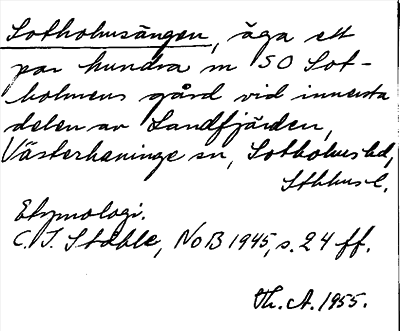 Sotholmsängen, äga ett
par hundra m SO Sot-
holmens gård vid innersta
delen av Landfjärden,
Västerhaninge sn, Sotholms hd,
Sthlms l.
Etymologi.
C. I. Ståhle, NoB 1945, s. 24 ff.
Th. A. 1955.